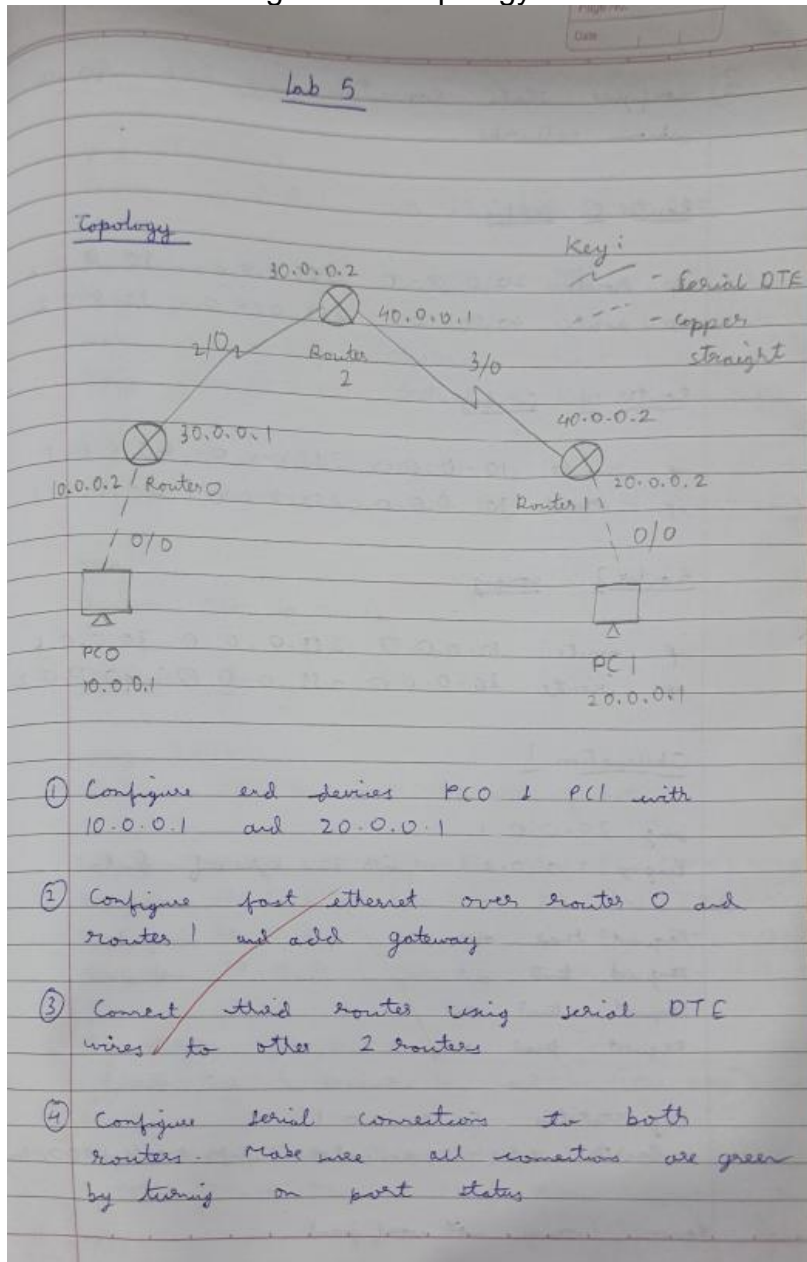 Date
Lab 5
Topology
Key:
30.0.0.2
- Serial DTE
40.0.0.1
- copper
straight
2/0
Router
2
3/0
40.0.0.2
30.0.0.1
10.0.0.2
Router 0
20.0.0.2
Router 1
0/0
0/0
PC0
PC1
10.0.0.1
20.0.0.1
① Configure end devices PC0 & PC1 with
10.0.0.1 and 20.0.0.1
② Configure fast ethernet over router 0 and
router 1 and add gateway
③ Connect third router using serial DTE
wires to other 2 routers
④ Configure serial connections to both
routers. Make sure all connections are green
by turning on port status